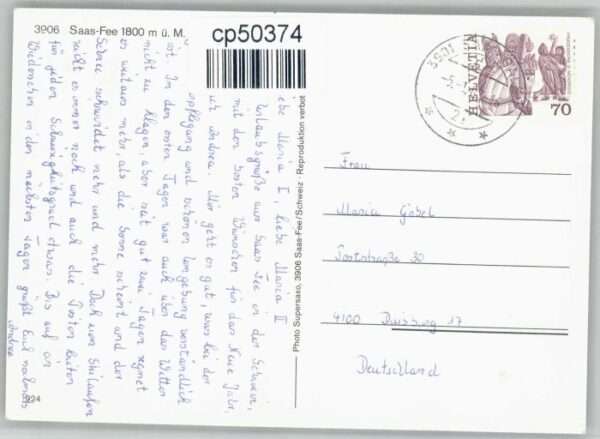 3906 Saas-Fee 1800 m ü. M.
cp50374
HELVETIA
70
3901
Liebe Maria I, liebe Maria II
Urlaubsgrüße aus Saas Fee in der Schweiz,
mit den besten Wünschen für das Neue Jahr,
von Andrea. Mir geht es gut, was bei der
Verpflegung und schönen Umgebung verständlich
ist. In den ersten Tagen war auch über das Wetter
nicht zu klagen, aber seit gut zwei Tagen regnet
es weitaus mehr, als die Sonne scheint und der
Schnee schwindet mehr und mehr. Doch zum Skilaufen
reicht es immer noch und auch die Pisten bieten
für jeden Schwierigkeitsgrad etwas. Bis auf ein
Wiedersehen in den nächsten Tagen grüßt Euch nochmals
Andrea
924
Photo Supersaxo, 3906 Saas-Fee/Schweiz · Reproduktion verbot
Frau
Maria Göbel
Poststraße 30
4100 Duisburg 17
Deutschland